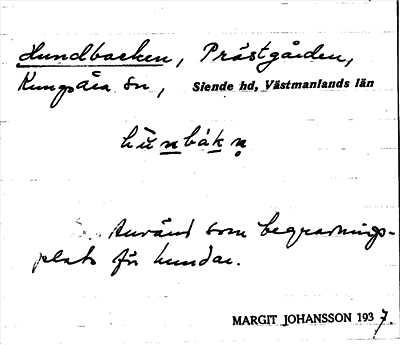 Hundbacken, Prästgården,
Kungsåra sn, Siende hd, Västmanlands län
hu̇nbákn̥
Använd som begravnings-
plats för hundar.
MARGIT JOHANSSON 1937.